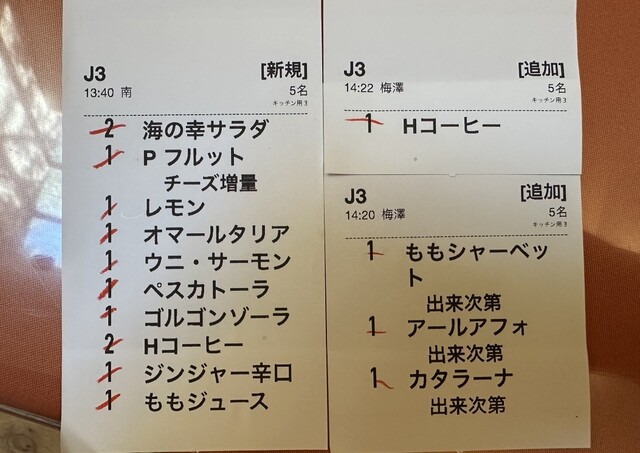 J3 [新規]
13:40 南 5名
キッチン用3
2 海の幸サラダ
1 P フルット
チーズ増量
1 レモン
1 オマールタリア
1 ウニ・サーモン
1 ペスカトーラ
1 ゴルゴンゾーラ
2 Hコーヒー
1 ジンジャー辛口
1 ももジュース
J3 [追加]
14:22 梅澤 5名
キッチン用3
1 Hコーヒー
J3 [追加]
14:20 梅澤 5名
キッチン用3
1 ももシャーベッ
ト
出来次第
1 アールアフォ
出来次第
1 カタラーナ
出来次第